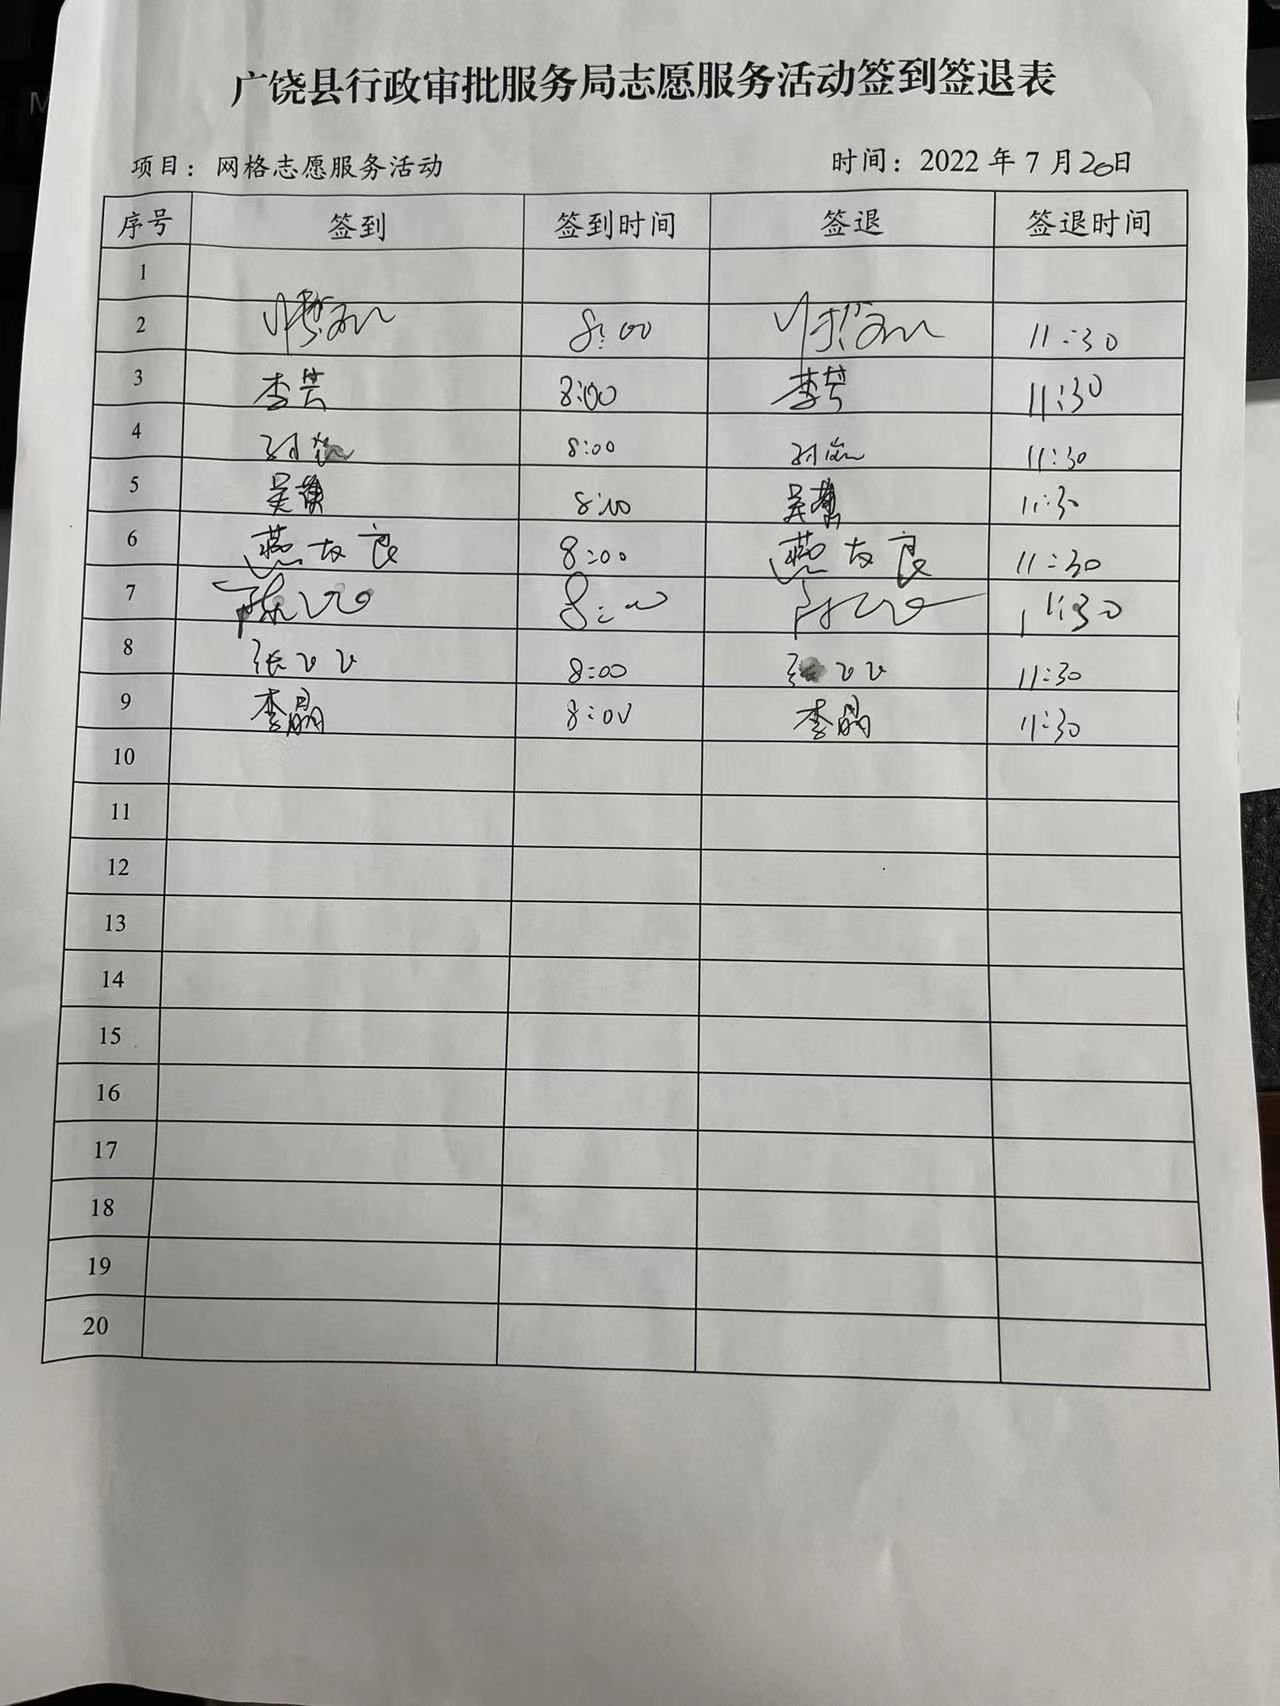 广饶县行政审批服务局志愿服务活动签到签退表
项目：网格志愿服务活动 时间：2022年7月20日
序号 签到 签到时间 签退 签退时间
1
2 8:00 11:30
3 李芸 8:00 李芸 11:30
4 8:00 11:30
5 吴 8:00 吴 11:30
6 燕友良 8:00 燕友良 11:30
7 陈 8:00 陈 11:30
8 张 8:00 张 11:30
9 李晶 8:00 李晶 11:30
10
11
12
13
14
15
16
17
18
19
20